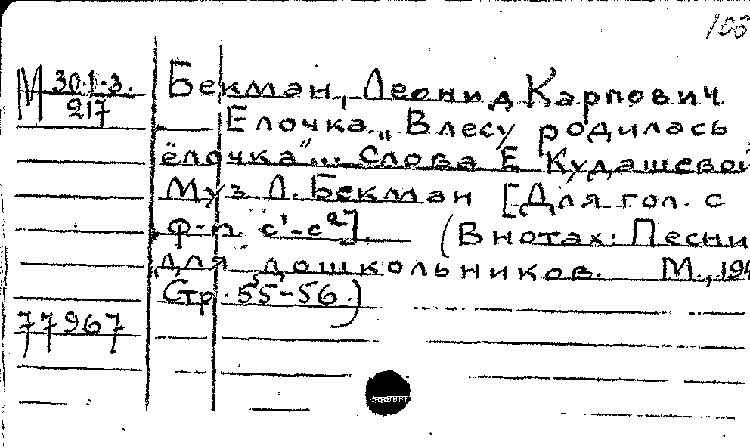 103
М 30.1-3. Бекман, Леонид Карпович
217
— Ёлочка. „В лесу родилась
ёлочка"... Слова Е Кудашевой
Муз Л. Бекман [Для гол. с
ф-п. c¹-c²]. (В нотах: Песни
для дошкольников. М., 194
Стр. 55-56.)
77967